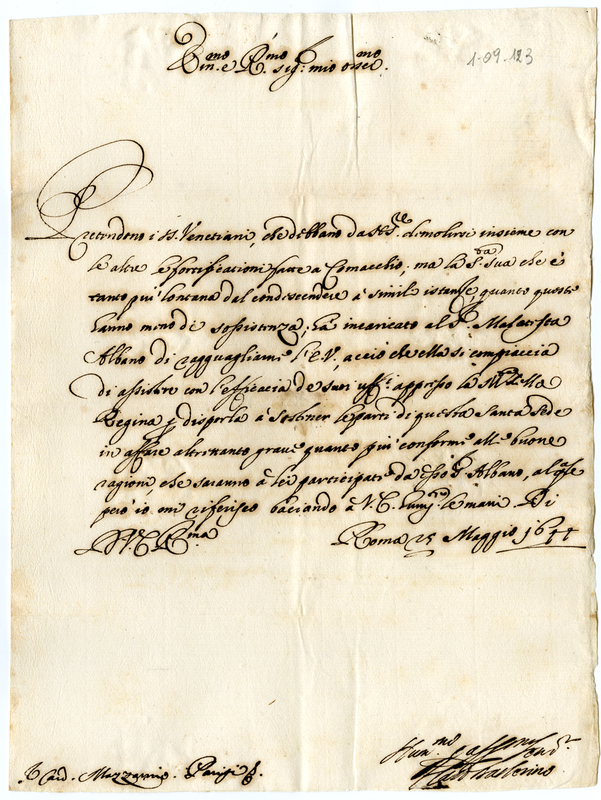 Em.mo e R.mo sig.r mio oss.mo
1-09.123
Pretendono i SS. Venetiani, che debbano da S. S.re demolirsi insieme con
le altre le fortificationi fatte a Comacchio, ma la S.tà Sua che è
tanto più lontana dal condescendere à simili istanze, quanto queste
hanno meno di sossistenza, hà incaricato al P. Malatesta
Albano di ragguagliarne l'E.V., acciò che ella si compiaccia
di assistere con l'efficacia de suoi uff.i appresso la M.tà della
Regina p disporla à sostener le parti di questa Santa Sede
in affare altretanto grave quanto più conforme alle buone
ragioni, che saranno à lei participate da esso P. Albano, al q.le
però io mi riferisco baciando à V. E. hum.te le mani. Di
V. E. R.ma
Roma 25 Maggio 1644
S. Card. Mazzarino. Parigi
Hum.mo